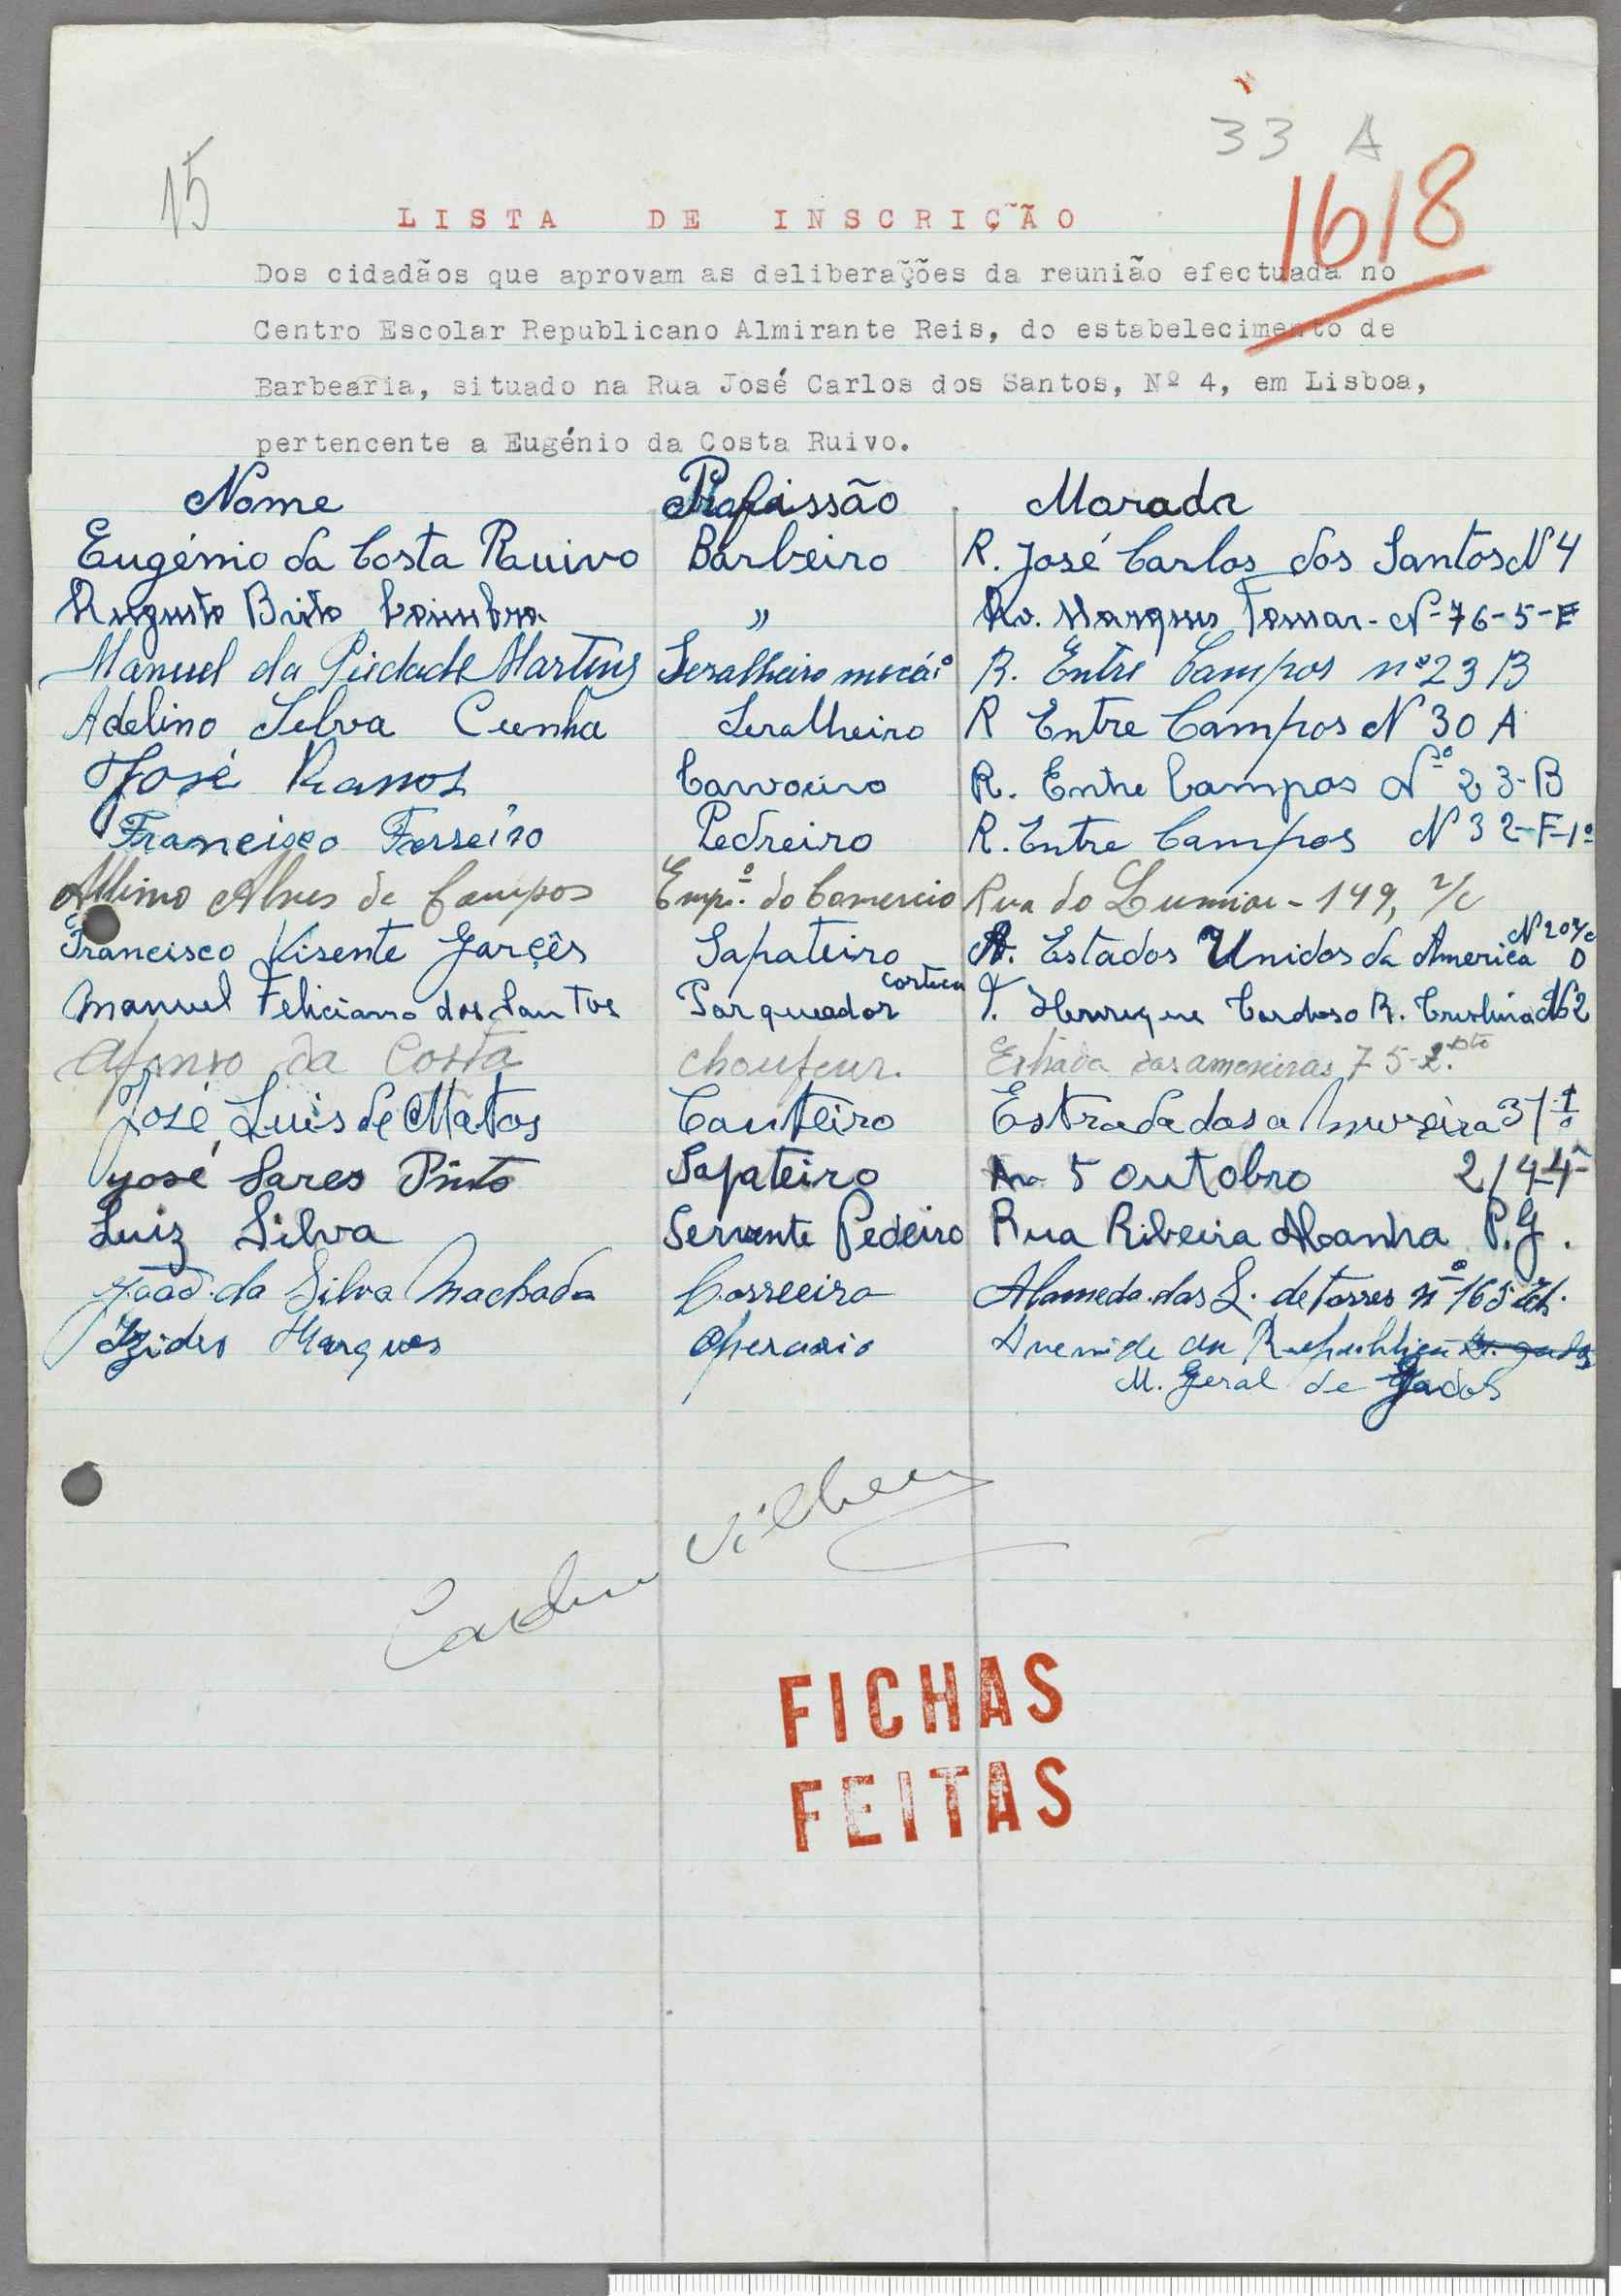 33 A
15
1618
LISTA DE INSCRIÇÃO
Dos cidadãos que aprovam as deliberações da reunião efectuada no
Centro Escolar Republicano Almirante Reis, do estabelecimento de
Barbearia, situado na Rua José Carlos dos Santos, Nº 4, em Lisboa,
pertencente a Eugénio da Costa Ruivo.
Nome Profissão Morada
Eugénio da Costa Ruivo Barbeiro R. José Carlos dos Santos N 4
Augusto Brito Coimbra " Av. Marques Tomar - Nº 76-5-E
Manuel da Piedade Martins Seralheiro mecá.º R. Entre Campos nº 23 B
Adelino Silva Cunha Seralheiro R Entre Campos N 30 A
José Ramos Carvoeiro R. Entre Campos Nº 23-B
Francisco Ferreiro Pedreiro R. Entre Campos N 32-F-1º
Alves de Campos Empº. do Comercio Rua do Lumiar - 149, r/c
Francisco Visente Garçês Sapateiro Av. Estados Unidos da America N 20 r/c D
Manuel Feliciano dos Santos Parqueador cortiça Henrique Cardoso R. Cristina 162
Afonso da Costa Choufeur. Estrada das amoreiras 75-2.º Dto
José Luis de Matos Canteiro Estrada das a moreira
José Sares Pinto Sapateiro Av 5 outubro 214-4º
Luiz Silva Servente Pedeiro Rua Ribeira Abanha P.G.
João da Silva Machado Correeiro Alameda das L. de Torres nº 165
Izidro Marques Operario Avenida da Republica
M. Geral de Gados
FICHAS
FEITAS